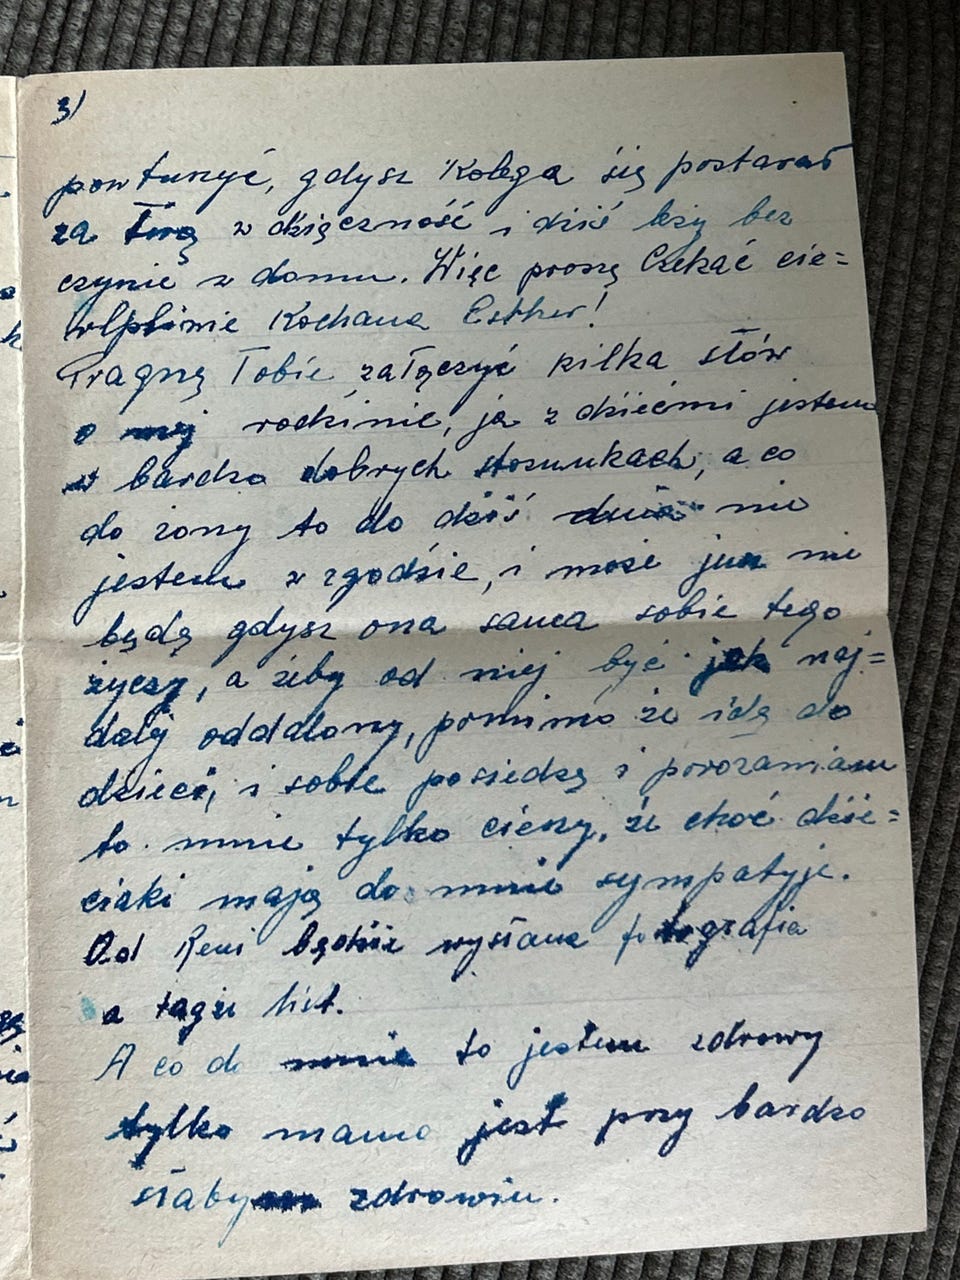 3/
powtuzyć, gdysz Kolega się postarał
za Twą wdzięczność i dziś leży bez
czynie w domu. Więc proszę Czekać cie=
Kochana Esther!
Pragnę Tobie załączyć kilka słów
o mej rodzinie, ja z dziećmi jestem
w bardzo dobrych stosunkach, a co
do żony to do dziś dnia nie
jestem w zgodzie, i może jusz nie
będę gdysz ona sama sobie tego
życzy, a żeby od niej być jak naj=
dalej oddalony, pomimo że idę do
dzieci, i sobie posiedzę i porozmaniam
to mnie tylko cieszy, że choć dzie=
ciaki mają do mnie sympatyje.
Od Reni będzie wysłana fotografia
a tagże list.
A co do mnie to jestem zdrowy
tylko mama jest przy bardzo
słabym zdrowiu.